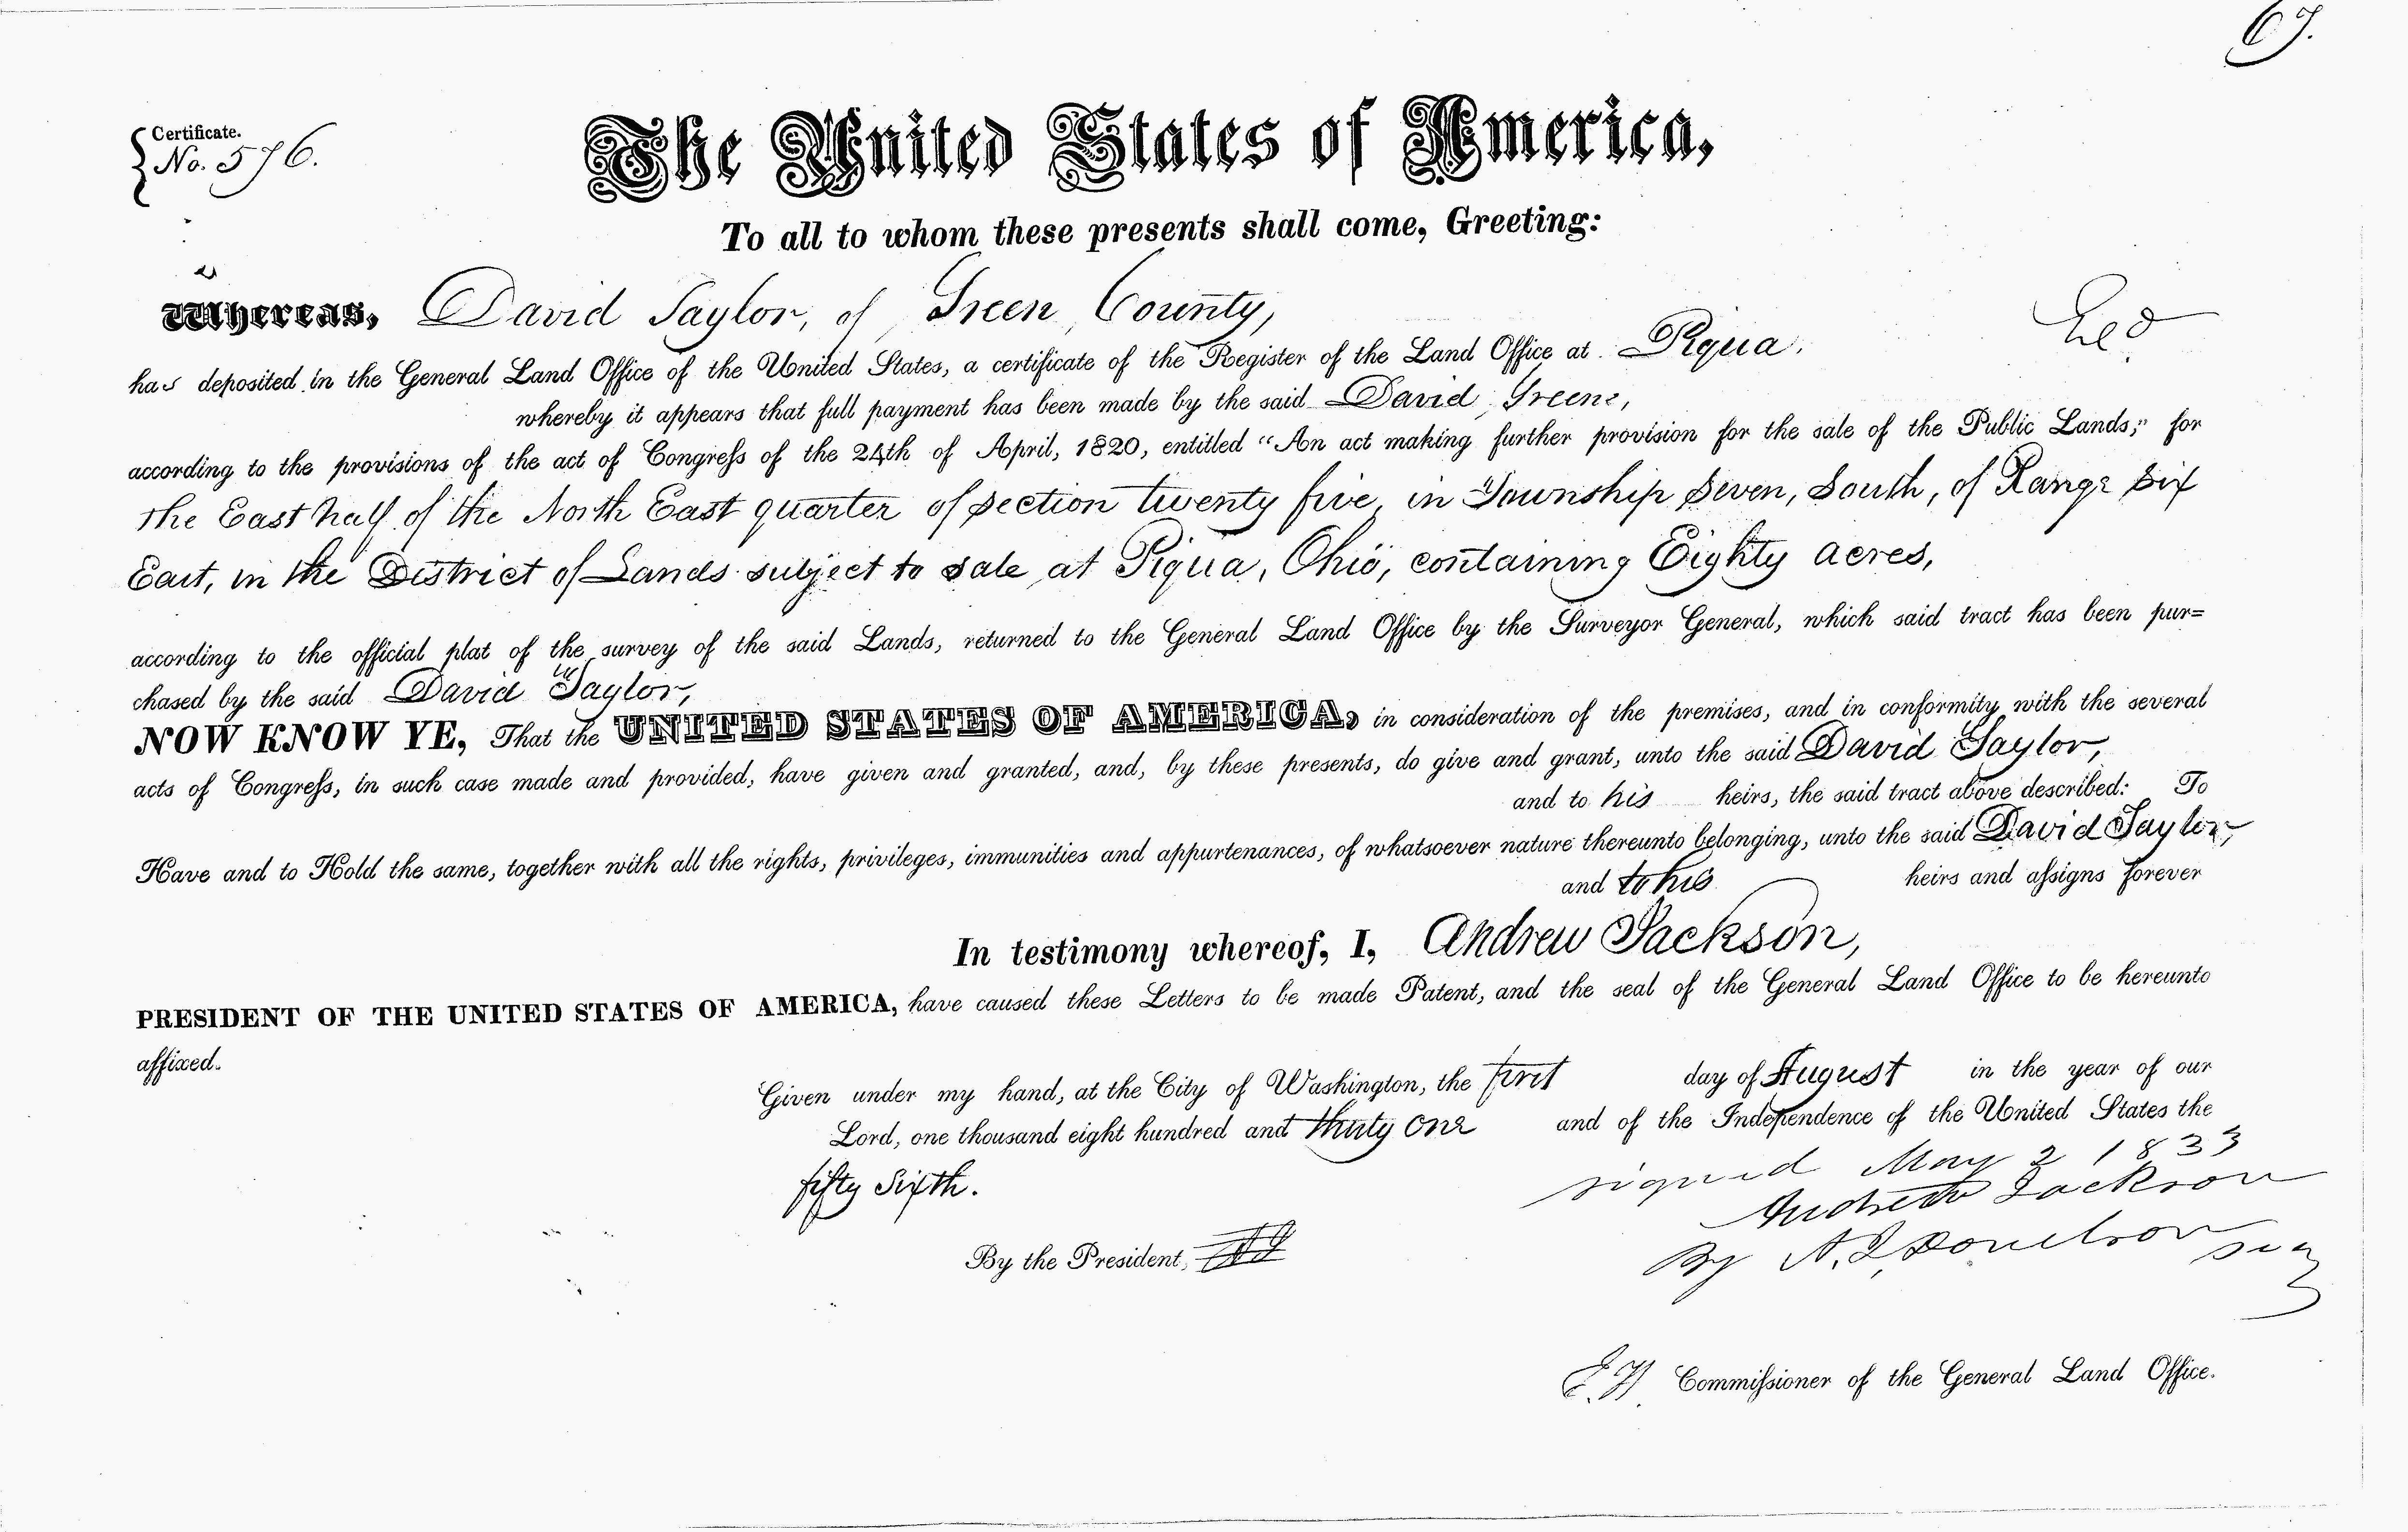 67.
Certificate.
No. 576.
The United States of America,
To all to whom these presents shall come, Greeting:
Whereas, David Taylor, of Green County,
has deposited in the General Land Office of the United States, a certificate of the Register of the Land Office at Piqua.
whereby it appears that full payment has been made by the said David Greene,
according to the provisions of the act of Congress of the 24th of April, 1820, entitled "An act making further provision for the sale of the Public Lands;" for
the East half of the North East quarter of section twenty five, in Township seven, South, of Range six
East, in the District of Lands subject to sale at Piqua, Ohio, containing Eighty acres,
according to the official plat of the survey of the said Lands, returned to the General Land Office by the Surveyor General, which said tract has been pur=
chased by the said David Taylor,
NOW KNOW YE, That the UNITED STATES OF AMERICA, in consideration of the premises, and in conformity with the several
acts of Congress, in such case made and provided, have given and granted, and, by these presents, do give and grant, unto the said David Taylor,
and to his heirs, the said tract above described: To
Have and to Hold the same, together with all the rights, privileges, immunities and appurtenances, of whatsoever nature thereunto belonging, unto the said David Taylor,
and to his heirs and assigns forever
In testimony whereof, I, Andrew Jackson,
PRESIDENT OF THE UNITED STATES OF AMERICA, have caused these Letters to be made Patent, and the seal of the General Land Office to be hereunto
affixed.
Given under my hand, at the City of Washington, the first day of August in the year of our
Lord, one thousand eight hundred and thirty one and of the Independence of the United States the
fifty sixth.
signed May 2 1833
Andrew Jackson
By the President,
By A. J. Donelson
Sec
Commissioner of the General Land Office.